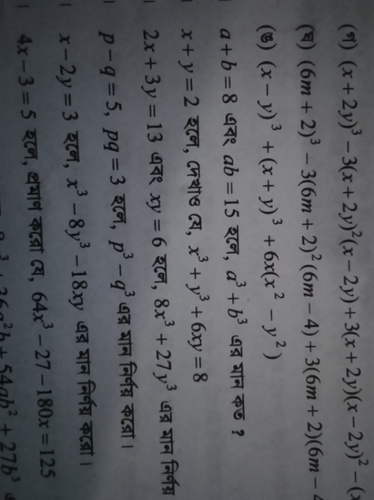 (গ) (x + 2y)³ – 3(x + 2y)²(x – 2y) + 3(x + 2y)(x – 2y)² – (x
(ঘ) (6m + 2)³ – 3(6m + 2)²(6m – 4) + 3(6m + 2)(6m –
(ঙ) (x – y)³ + (x + y)³ + 6x(x² – y²)
a + b = 8 এবং ab = 15 হলে, a³ + b³ এর মান কত ?
x + y = 2 হলে, দেখাও যে, x³ + y³ + 6xy = 8
2x + 3y = 13 এবং xy = 6 হলে, 8x³ + 27y³ এর মান নির্ণয়
p – q = 5, pq = 3 হলে, p³ – q³ এর মান নির্ণয় করো।
x – 2y = 3 হলে, x³ – 8y³ – 18xy এর মান নির্ণয় করো।
4x – 3 = 5 হলে, প্রমাণ করো যে, 64x³ – 27 – 180x = 125
+ 36a²b + 54ab² + 27b³